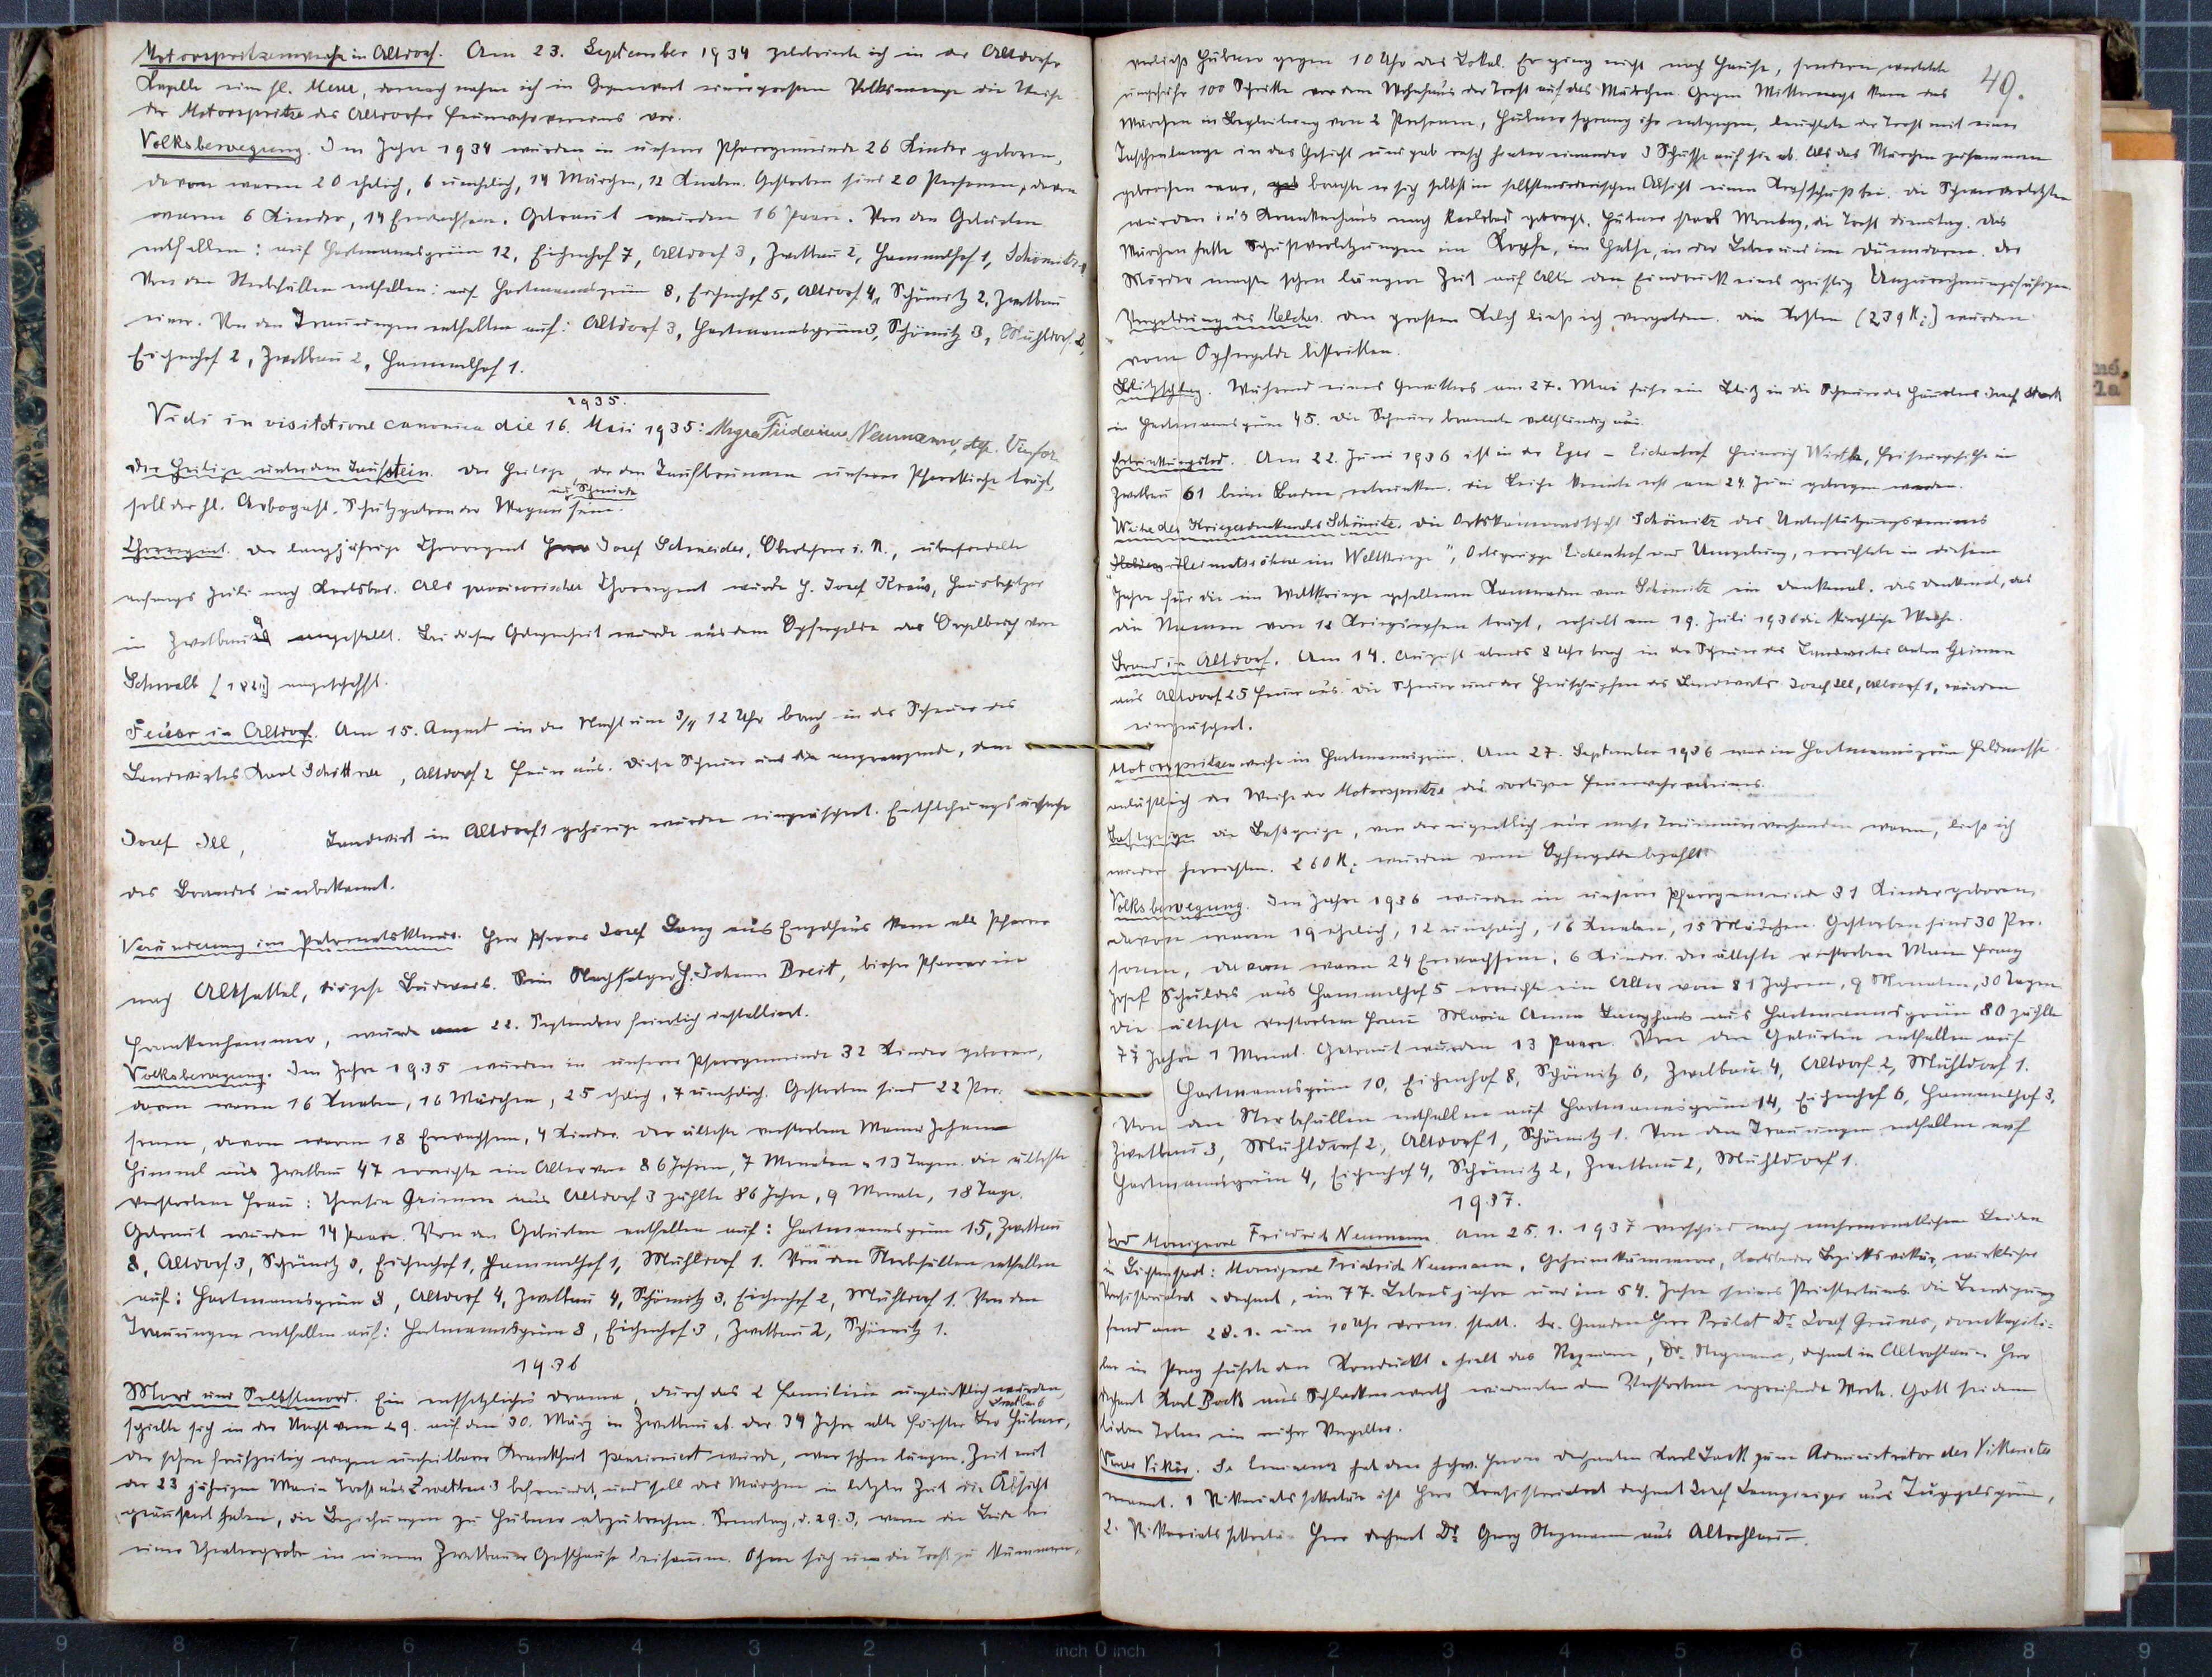 Motorspritzenweihe in Altdorf. Am 23. September 1934 zelebrierte ich in der Altdorfer
Kapelle eine hl. Messe, darnach nahm ich in Gegenwart einer grossen Volksmenge die Weihe
der Motorspritze des Altdorfer Feuerwehrvereines vor.
Volksbewegung. Im Jahre 1934 wurden in unserer Pfarrgemeinde 26 Kinder geboren,
davon waren 20 ehelich, 6 unehelich, 14 Mädchen, 12 Knaben. Gestorben sind 20 Personen, davon
waren 6 Kinder, 14 Erwachsene. Getraut wurden 16 Paare. Von den Geburten
entfallen: auf Hartmannsgrün 12, Eichenhof 7, Altdorf 3, Zwetbau 2, Hammelhof 1, Schömitz 1.
Von den Sterbefällen entfallen: auf Hartmannsgrün 8, Eichenhof 5, Altdorf 4, Schömitz 2, Zwetbau
einer. Von den Trauungen entfallen auf: Altdorf 3, Hartmannsgrün 3, Schömitz 3, Mühldorf 2,
Eichenhof 2, Zwetbau 2, Hammelhof 1.
1935.
Vidi in visitatione canonica die 16. Maii 1935: Msgre Fridericus Neumann, Vic. for.
Der Heilige unter dem Taufstein. Der Heilige, der den Taufbrunnen unserer Pfarrkirche trägt,
soll der hl. Arbogast, Schutzpatron der Wagner und Schmiede sein.
Chorregent. Der langjährige Chorregent Herr Josef Schneider, Oberlehrer i. R., übersiedelte
anfangs Juli nach Karlsbad. Als provisorischer Chorregent wurde H. Josef Kraus, Hausbesitzer
in Zwetbau angestellt. Bei dieser Gelegenheit wurde aus dem Opfergelde das Orgelbuch von
Schwalb angeschafft.
Feuer in Altdorf. Am 15. August in der Nacht um 3/4 12 Uhr brach in der Scheuer des
Landwirtes Karl Schittner, Altdorf 2 Feuer aus. Diese Scheuer und die angrenzende, dem
Josef Ill, Landwirt in Altdorf 1 gehörige wurden eingeäschert. Entstehungsursache
des Brandes unbekannt.
Veränderung im Patronatsklerus. Herr Pfarrer Josef Lang aus Engelhaus kam als Pfarrer
nach Altsattel, Diözese Budweis. Sein Nachfolger H. Johann Breit, bisher Pfarrer in
Frankenhammer, wurde am 22. September feierlich installiert.
Volksbewegung. Im Jahre 1935 wurden in unserer Pfarrgemeinde 32 Kinder geboren,
davon waren 16 Knaben, 16 Mädchen, 25 ehelich, 7 unehelich. Gestorben sind 22 Per-
sonen, davon waren 18 Erwachsene, 4 Kinder. Der älteste verstorbene Mann Johann
Himmel aus Zwetbau 47 erreichte ein Alter von 86 Jahren, 7 Monaten u. 13 Tagen. Die älteste
verstorbene Frau: Theresia Grimm aus Altdorf 3 zählte 86 Jahre, 9 Monate, 18 Tage.
Getraut wurden 14 Paare. Von den Geburten entfallen auf: Hartmannsgrün 15, Zwetbau
8, Altdorf 3, Schömitz 3, Eichenhof 1, Hammelhof 1, Mühldorf 1. Von den Sterbefällen entfallen
auf: Hartmannsgrün 8, Altdorf 4, Zwetbau 4, Schömitz 3, Eichenhof 2, Mühldorf 1. Von den
Trauungen entfallen auf: Hartmannsgrün 8, Eichenhof 3, Zwetbau 2, Schömitz 1.
1936
Mord und Selbstmord. Ein entsetzliches Drama, durch das 2 Familien unglücklich wurden,
spielte sich in der Nacht vom 29. auf den 30. März in Zwetbau ab. Der 34 Jahre alte Förster Leo Hübner,
der schon frühzeitig wegen unheilbarer Krankheit pensioniert wurde, war schon längere Zeit mit
der 23 jährigen Maria Trost aus Zwetbau 3 befreundet, und soll das Mädchen in letzter Zeit die Absicht
geäußert haben, die Beziehungen zu Hübner abzubrechen. Sonntag, d. 29.3. waren die Beide bei
einer Theaterprobe in einem Zwetbauer Gasthause beisammen. Ohne sich um die Trost zu kümmern,
49.
verließ Hübner gegen 10 Uhr das Lokal. Er ging nicht nach Hause, sondern wartete
ungefähr 100 Schritte vor dem Wohnhaus der Trost auf das Mädchen. Gegen Mitternacht kam das
Mädchen in Begleitung von 2 Personen, Hübner sprang ihr entgegen, leuchtete der Trost mit einer
Taschenlampe in das Gesicht und gab rasch hintereinander 3 Schüsse auf sie ab. Als das Mädchen zusammen
gebrochen war, brachte er sich selbst in selbstmörderischer Absicht einen Kopfschuß bei. Die Schwerverletzten
wurden ins Krankenhaus nach Karlsbad gebracht. Hübner starb Montag, die Trost Dienstag. Das
Mädchen hatte Schußverletzungen im Kopfe, im Halse, in der Leber und im Dünndarm. Der
Mörder machte schon längere Zeit auf Alle den Eindruck eines geistig Unzurechnungsfähigen.
Vergoldung des Kelches. Den großen Kelch ließ ich vergolden. Die Kosten (239 Kč) wurden
vom Opfergelde bestritten.
Blitzschlag. Während eines Gewitters am 27. Mai fuhr ein Blitz in die Scheuer des Josef
in Hartmannsgrün 45. Die Scheuer brannte vollständig aus.
Ertrinkungstod. Am 22. Juni 1936 ist in der Eger - Eichenhof Heinrich in
Zwetbau 61 beim Baden ertrunken. Die Leiche konnte erst am 24. Juni geborgen werden.
Weihe des Kriegerdenkmales Schömitz. Die Ortskameradschaft Schömitz des Unterstützungsvereines
"Heimatsöhne im Weltkriege", Ortsgruppe Eichenhof und Umgebung, errichtete in diesem
Jahre für die im Weltkriege gefallenen Kameraden von Schömitz ein Denkmal. Das Denkmal, das
die Namen von Kriegsopfern trägt, erhielt am 19. Juli 1936 die kirchliche Weihe.
Brand in Altdorf. Am 14. August abends 8 Uhr brach in der Scheuer des Landwirtes Anton Grimm
aus Altdorf 25 Feuer aus. Die Scheuer und der Heuschupfen des Landwirts Josef Ill, Altdorf 1, wurden
eingeäschert.
Motorspritzenweihe in Hartmannsgrün. Am 27. September 1936 war in Hartmannsgrün Feldmesse
anläßlich der Weihe der Motorspritze des dortigen Feuerwehrvereines.
Baßgeige. Die Baßgeige, von der eigentlich nur mehr Trümmer vorhanden waren, ließ ich
wieder herrichten. 260 Kč wurden vom Opfergelde bezahlt.
Volksbewegung. Im Jahre 1936 wurden in unserer Pfarrgemeinde 31 Kinder geboren,
davon waren 19 ehelich, 12 unehelich, 16 Knaben, 15 Mädchen. Gestorben sind 30 Per-
sonen, davon waren 24 Erwachsene, 6 Kinder. Der älteste verstorbene Mann Franz
Josef Schuldes aus Hammelhof 5 erreichte ein Alter von 81 Jahren, 9 Monaten, 30 Tagen.
Die älteste verstorbene Frau Maria Anna Langhans aus Hartmannsgrün 80 zählte
77 Jahre 1 Monat. Getraut wurden 13 Paare. Von den Geburten entfallen auf
Hartmannsgrün 10, Eichenhof 8, Schömitz 6, Zwetbau 4, Altdorf 2, Mühldorf 1.
Von den Sterbefällen entfallen auf Hartmannsgrün 14, Eichenhof 6, Hammelhof 3,
Zwetbau 3, Mühldorf 2, Altdorf 1, Schömitz 1. Von den Trauungen entfallen auf
Hartmannsgrün 4, Eichenhof 4, Schömitz 2, Zwetbau 2, Mühldorf 1.
1937.
Tod Monsignore Friedrich Neumann. Am 25.1.1937 verschied nach mehrmonatlichem Leiden
in Lichtenstadt: Monsignore Friedrich Neumann, Geheimkämmerer, Karlsbader Bezirksvikär, wirklicher
Konsistorialrat u. Dechant, im 77. Lebensjahre und im 54. Jahre seines Priestertums. Die Beerdigung
fand am 28.1. um 10 Uhr vorm. statt. Sr. Gnaden Herr Prälat Dr. Josef Gruner, Domkapitu-
lar in Prag führte den Kondukt u. hielt das Requiem, Dr. Stegmann, Dechant in Altrohlau u. Herr
Dechant Karl Bock aus Schlackenwerth widmeten dem Verstorbenen ergreifende Worte. Gott sei dem
lieben Toten ein reicher Vergelter.
Neuer Vikär. Se Eminenz hat den hochw. Herrn Dechanten Karl Bock zum Administrator des Vikariates
ernannt. 1. Vikariatssekretär ist Herr Konsistorialrat Dechant Josef aus Tüppelsgrün,
2. Vikariatssekretär Herr Dechant Dr. Georg Stegmann aus Altrohlau.
9 8 7 6 5 4 3 2 1 inch 0 inch 1 2 3 4 5 6 7 8 9